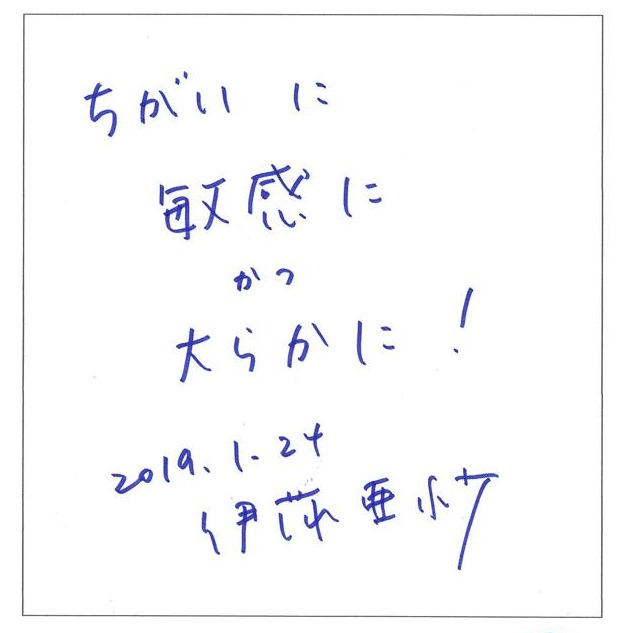 ちがいに
敏感に
かつ
大らかに!
2019.1.24
伊藤亜紗